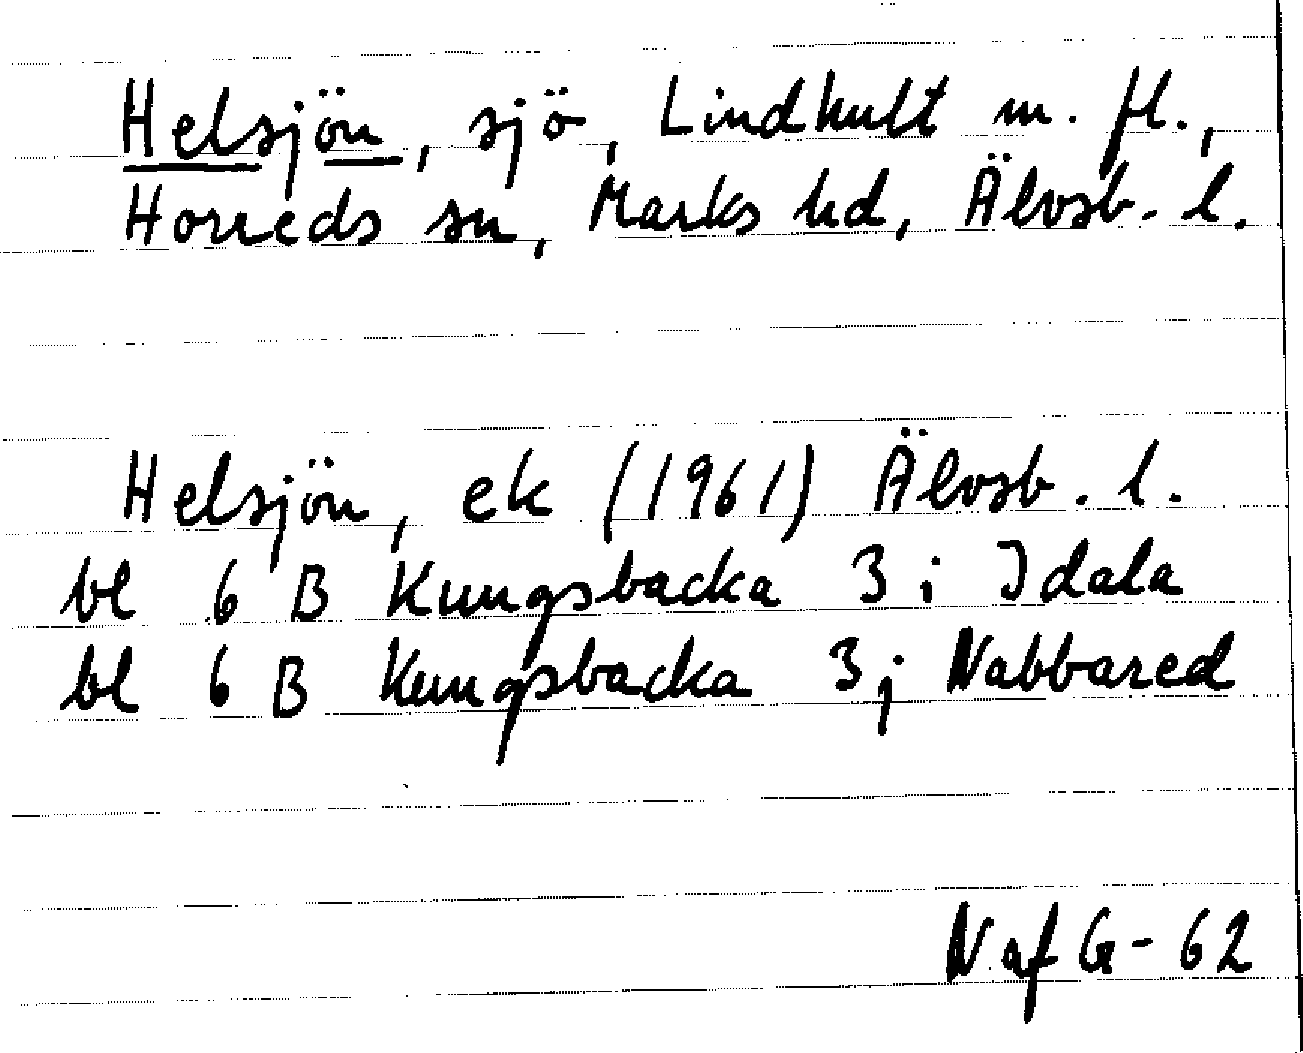 Helsjön, sjö, Lindhult m. fl.,
Horreds sn, Marks hd, Älvsb. l.
Helsjön, ek (1961) Älvsb. l.
bl 6 B Kungsbacka 3 i Idala
bl 6 B Kungsbacka 3 j Nabbared
N af G-62